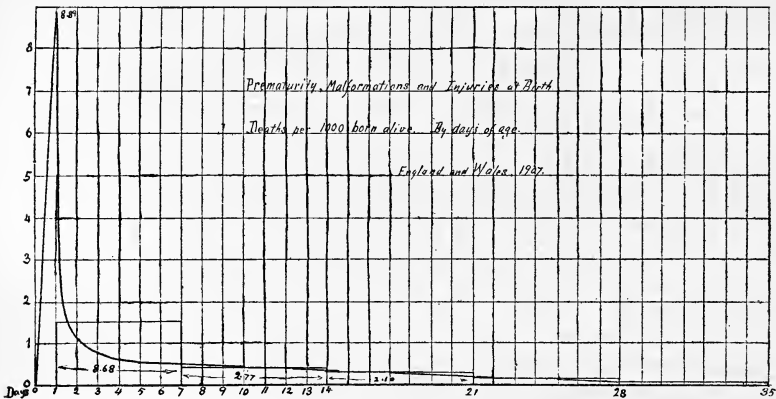 8.89
8
7
6
5
4
3
2
1
0
Prematurity, Malformations and Injuries at Birth
Deaths per 1000 born alive. By days of age.
England and Wales, 1907.
8.68
2.77
2.10
Days 0 1 2 3 4 5 6 7 8 9 10 11 12 13 14 21 28 35